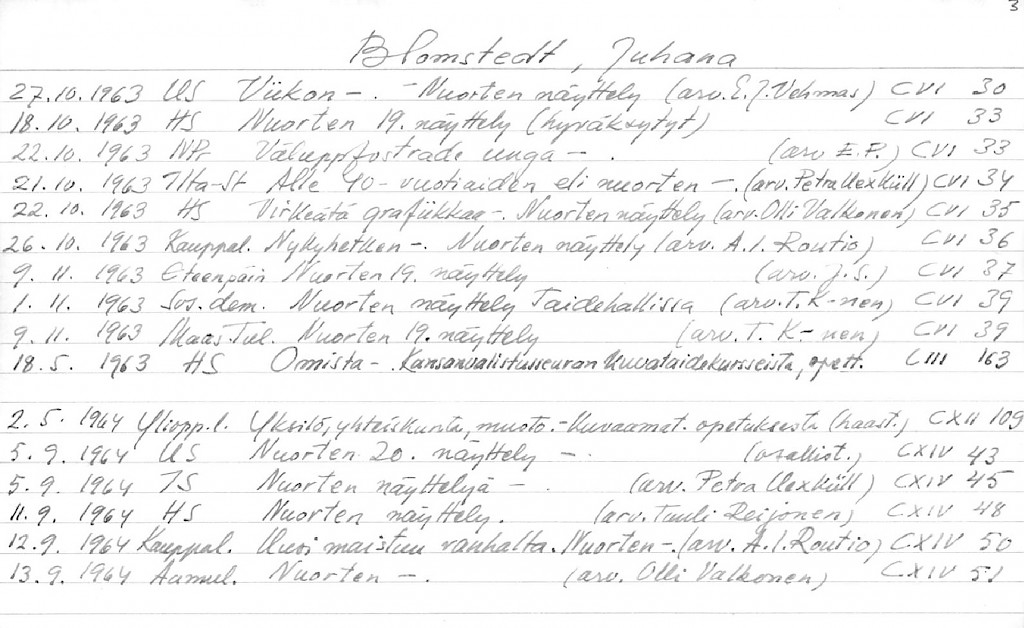 3
Blomstedt, Juhana
27.10.1963 US Viikon -. - Nuorten näyttely (arv. E.J. Vehmas) CVI 30
18.10.1963 HS Nuorten 19. näyttely (hyväksytyt) CVI 33
22.10.1963 NPr Väluppfostrade unga - . (arv E.P.) CVI 33
21.10.1963 Ilta-St Alle 40-vuotiaiden eli nuorten -. (arv. Petra Uexküll) CVI 34
22.10.1963 HS Virkeätä grafiikkaa -. Nuorten näyttely (arv. Olli Valkonen) CVI 35
26.10.1963 Kauppal. Nykyhetken -. Nuorten näyttely (arv. A.I. Routio) CVI 36
9.11.1963 Eteenpäin Nuorten 19. näyttely (arv. J.S.) CVI 37
1.11.1963 Sos.dem. Nuorten näyttely Taidehallissa (arv. T. K-nen) CVI 39
9.11.1963 Maas.Tul. Nuorten 19. näyttely (arv. T. K-nen) CVI 39
18.5.1963 HS Omista - . Kansanvalistusseuran kuvataidekursseista, opett. CIII 163
2.5.1964 Yliopp.l. Yksilö, yhteiskunta, muoto. - Kuvaamat. opetuksesta (haast.) CXII 109
5.9.1964 US Nuorten 20. näyttely - . (osallist.) CXIV 43
5.9.1964 IS Nuorten näyttelyä - . (arv. Petra Uexküll) CXIV 45
11.9.1964 HS Nuorten näyttely. (arv. Tuuli Reijonen) CXIV 48
12.9.1964 Kauppal. Uusi maistuu vanhalta. Nuorten -. (arv. A.I. Routio) CXIV 50
13.9.1964 Aamul. Nuorten -. (arv. Olli Valkonen) CXIV 51